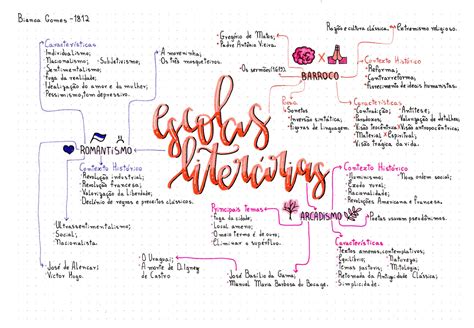 Bianca Gomes - 1812
Características
Individualismo;
Nacionalismo;
Subjetivismo;
Sentimentalismo;
Fuga da realidade;
Idealização do amor e da mulher;
Pessimismo, tom depressivo.
A moreninha;
Os três mosqueteiros.
ROMANTISMO
Contexto Histórico
Revolução industrial;
Revolução francesa;
Valorização da liberdade;
Declínio de regras e preceitos clássicos.
Ultrassentimentalismo;
Social;
Nacionalista.
José de Alencar;
Victor Hugo.
escolas
literárias
Gregório de Matos;
Padre Antônio Vieira.
Os sermões
BARROCO
Razão e cultura clássica.
Extremismo religioso.
Contexto Histórico
Reforma;
Contrarreforma;
Florescimento de ideais humanistas.
Prosa
Sonetos
Inversão sintática;
Figuras de linguagem.
Características
Contradição;
Antítese;
Paradoxos;
Valorização de detalhes;
Visão teocêntrica
Visão antropocêntrica;
Material
Espiritual;
Visão trágica da vida.
ARCADISMO
Contexto Histórico
Iluminismo;
Nova ordem social;
Êxodo rural;
Racionalidade;
Revoluções Americana e Francesa.
Poetas usavam pseudônimos.
Principais temas
Fuga da cidade;
Local ameno;
Meio termo é de ouro;
Eliminar o supérfluo.
Características
Textos amenos, contemplativos;
Equilíbrio;
Natureza;
Temas pastoris;
Mitologia;
Retomada da Antiguidade Clássica;
Simplicidade.
O Uraguai;
A morte de
de Castro
José Basílio da Gama;
Manuel Maria Barbosa du Bocage.